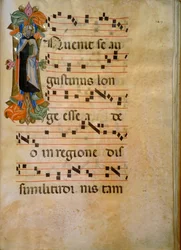 INuenit se au
gustinus lon
ge esse a de
o in regione dis
similitudi nis tam